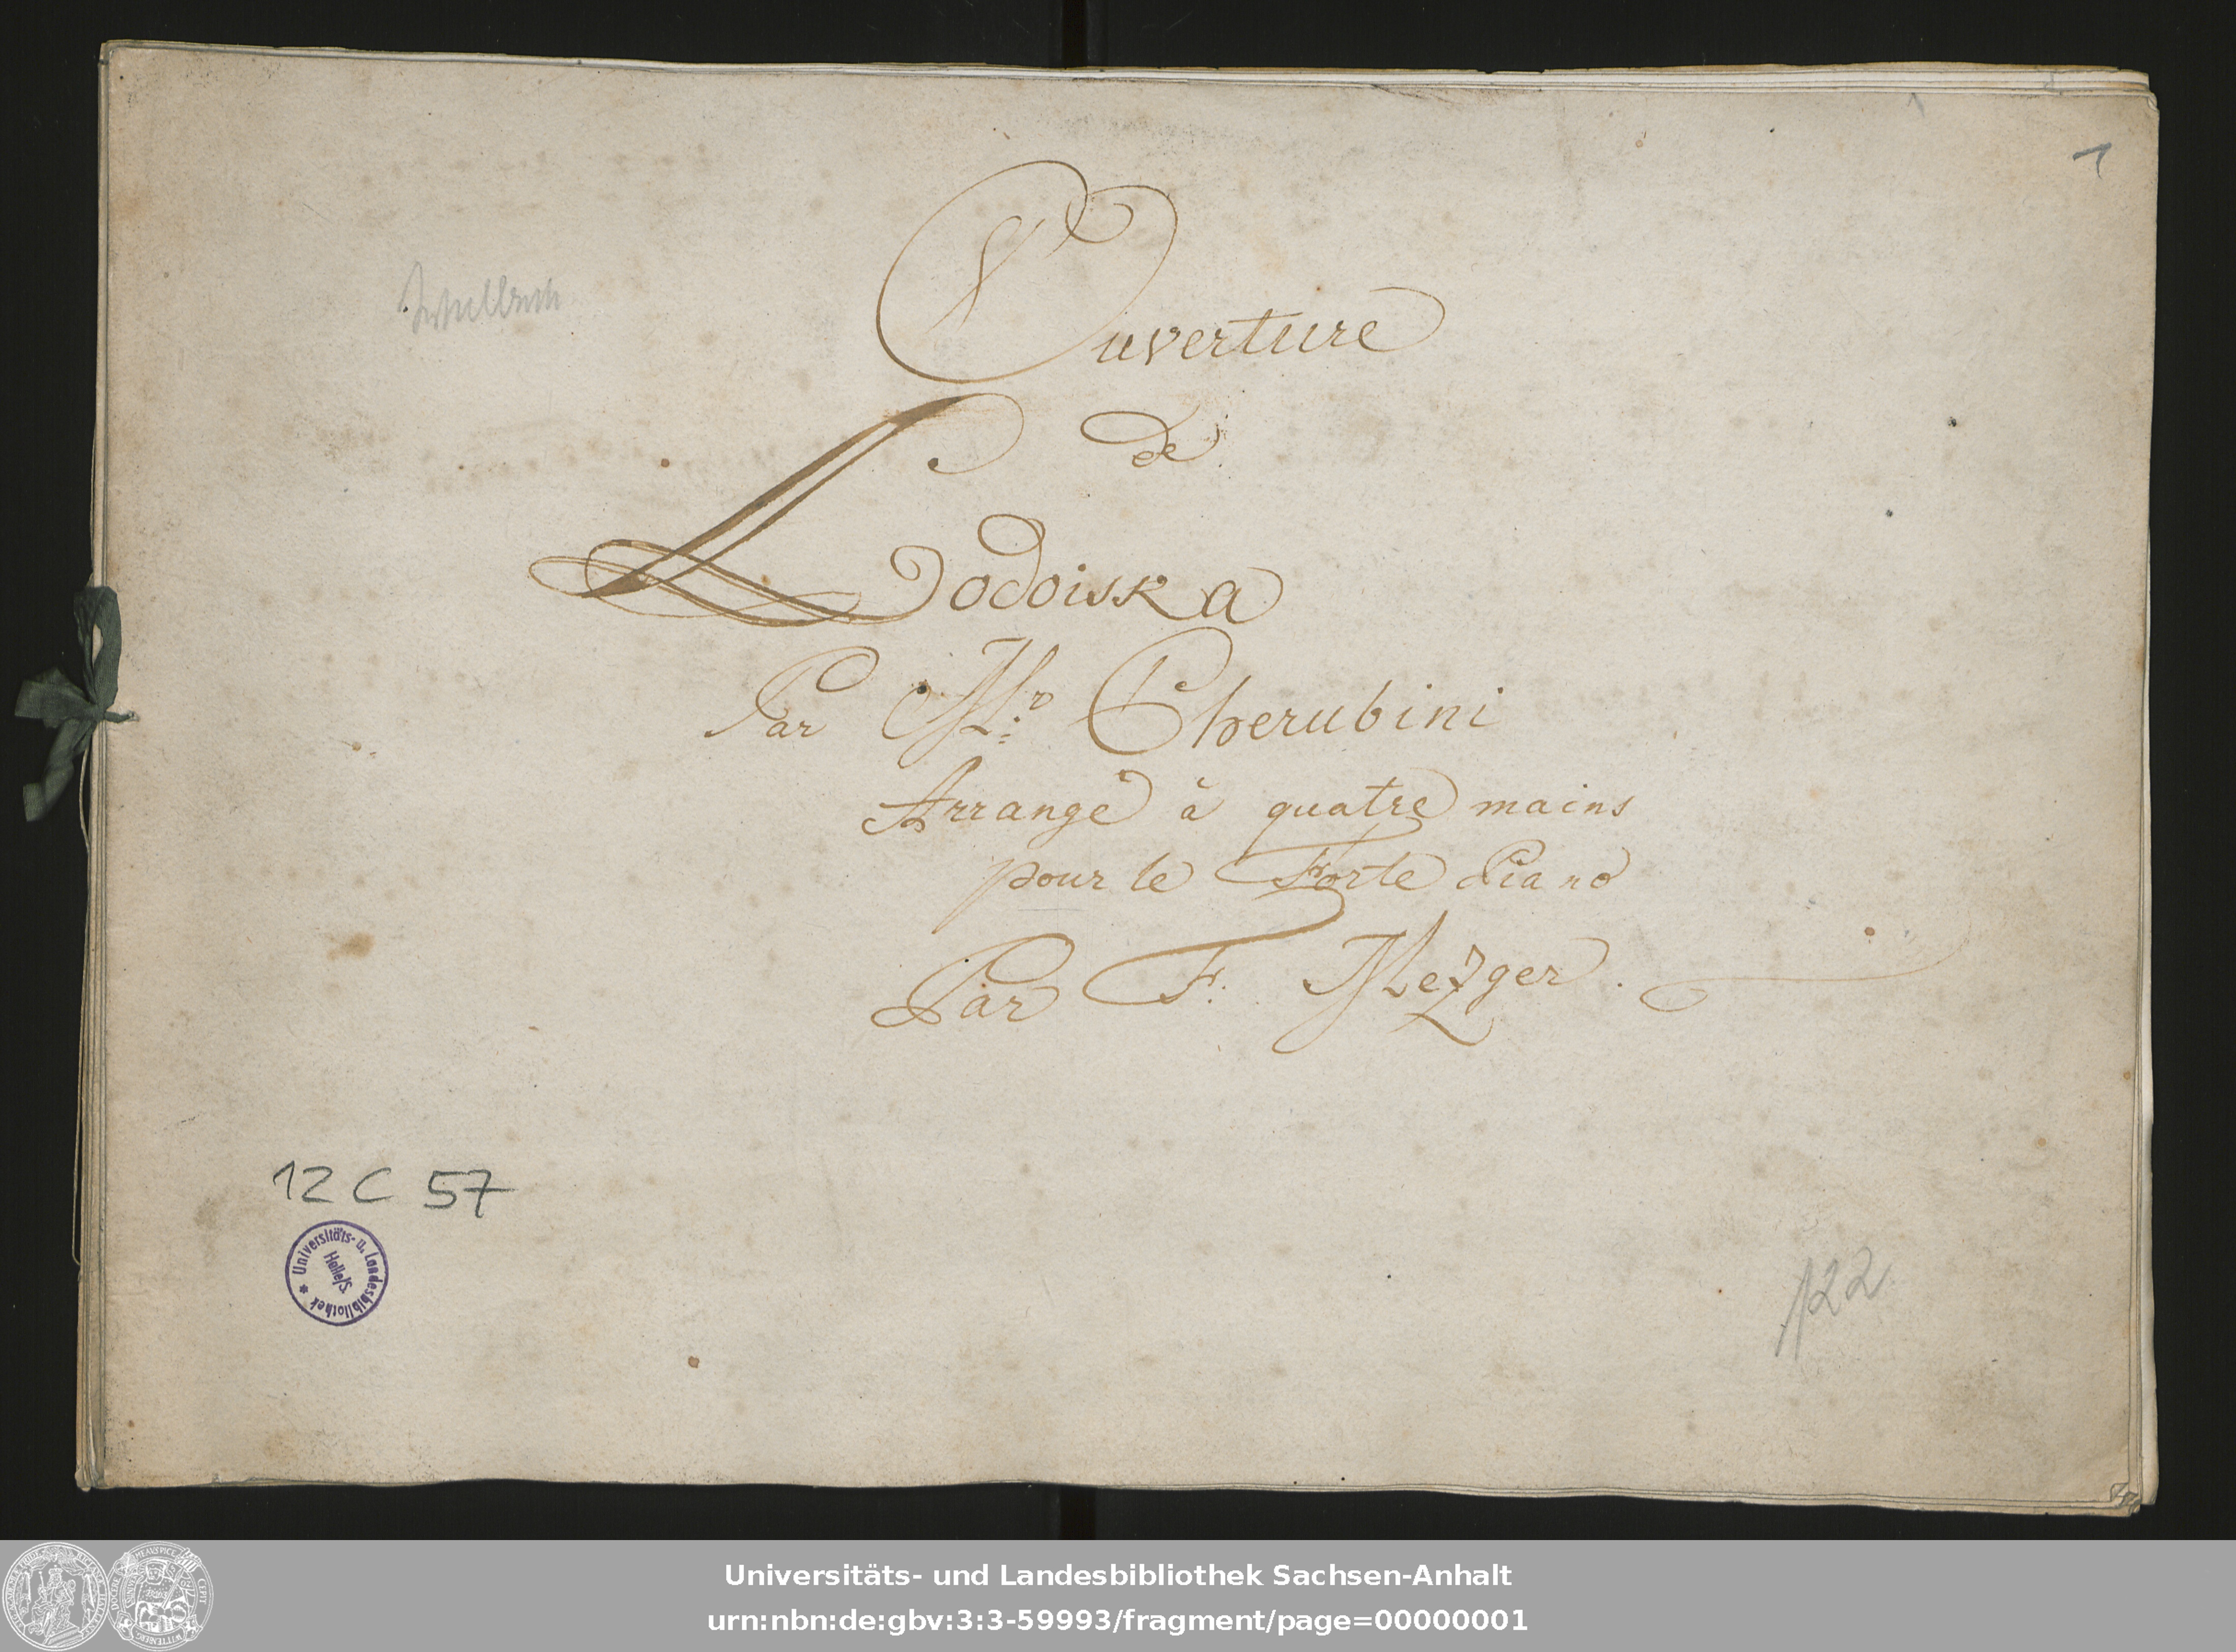 1
Ouverture
de
Lodoiska
Par Mr. Cherubini
Arrangé à quatre mains
pour le Forte Piano
Par F. Mezger.
12 C 57
Universitäts- u. Landesbibliothek
Halle/S
122
Universitäts- und Landesbibliothek Sachsen-Anhalt
urn:nbn:de:gbv:3:3-59993/fragment/page=00000001